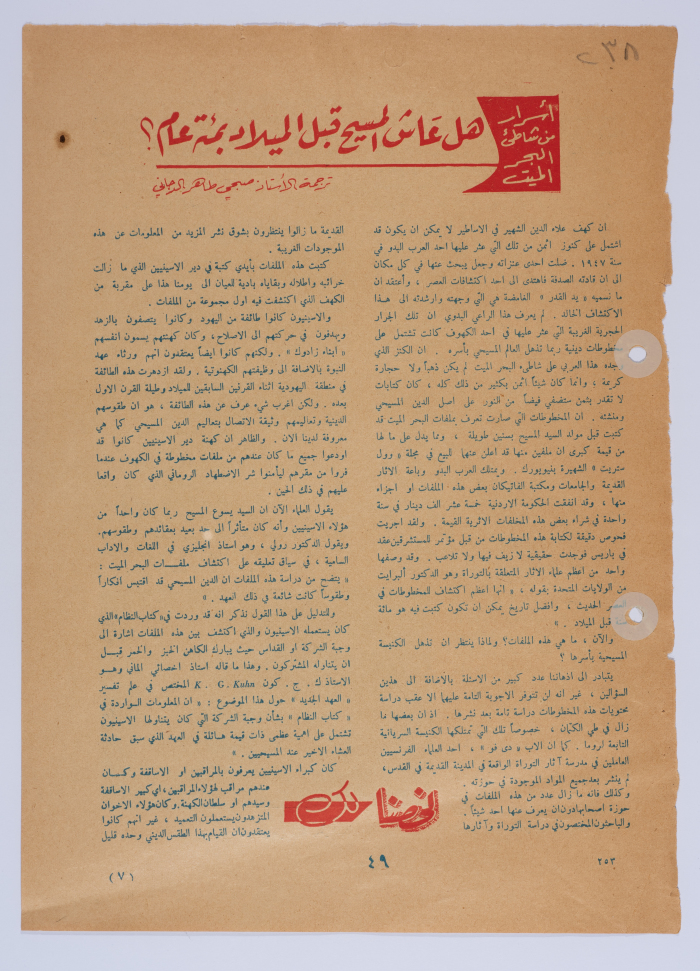 ٢٣٨
أسرار
من شاطئ
البحر
الميت
هل عَاش المسيح قبل الميلاد بمئة عام؟
ترجمة الأستاذ صبحي طاهر الدجاني
ان كهف علاء الدين الشهير في الاساطير لا يمكن ان يكون قد
اشتمل على كنوز أثمن من تلك التي عثر عليها احد العرب البدو في
سنة ١٩٤٧. ضلت احدى عنزاته وجعل يبحث عنها في كل مكان
الى ان قادته الصدفة فاهتدى الى احد اكتشافات العصر، وأعتقد ان
ما نسميه « يد القدر » الغامضة هي التي وجهته وارشدته الى هذا
الاكتشاف الخالد. لم يعرف هذا الراعي البدوي ان تلك الجرار
الحجرية الغريبة التي عثر عليها في أحد الكهوف كانت تشتمل على
مخطوطات دينية ربما تذهل العالم المسيحي بأسره. ان الكنز الذي
وجده هذا العربي على شاطىء البحر الميت لم يكن ذهباً ولا حجارة
كريمة، وانما كان شيئاً أثمن بكثير من ذلك كله، كان كتابات
لا تقدر بثمن ستضفي فيضاً من النور على اصل الدين المسيحي
ومنشئه. ان المخطوطات التي صارت تعرف بملفات البحر الميت قد
كتبت قبل مولد السيد المسيح بسنين طويلة، ومما يدل على ما لها
من قيمة كبرى ان ملفين منها قد اعلن عنهما للبيع في مجلة « وول
ستريت » الشهيرة بنيويورك. ويمتلك العرب البدو وباعة الاثار
القديمة والجامعات ومكتبة الفاتيكان بعض هذه الملفات او اجزاء
منها، وقد انفقت الحكومة الاردنية خمسة عشر الف دينار في سنة
واحدة في شراء بعض هذه المخلفات الاثرية القيمة. ولقد اجريت
فحوص دقيقة لكتابة هذه المخطوطات من قبل مؤتمر للمستشرقين عقد
في باريس فوجدت حقيقية لا زيف فيها ولا تلاعب. وقد وصفها
واحد من اعظم علماء الاثار المتعلقة بالتوراة وهو الدكتور ألبرايت
من الولايات المتحدة بقوله، « انها اعظم اكتشاف للمخطوطات في
العصر الحديث، وافضل تاريخ يمكن ان تكون كتبت فيه هو مائة
سنة قبل الميلاد. »
والآن، ما هي هذه الملفات؟ ولماذا ينتظر ان تذهل الكنيسة
المسيحية بأسرها؟
يتبادر الى اذهاننا عدد كبير من الاسئلة بالاضافة الى هذين
السؤالين، غير انه لن تتوفر الاجوبة التامة عليهما الا عقب دراسة
محتويات هذه المخطوطات دراسة تامة بعد نشرها. اذ ان بعضها ما
زال في طي الكتمان، خصوصاً تلك التي تمتلكها الكنيسة السريانية
التابعة لروما. كما ان الاب « دي فو »، احد العلماء الفرنسيين
العاملين في مدرسة آثار التوراة الواقعة في المدينة القديمة في القدس،
لم ينشر بعد جميع المواد الموجودة في حوزته.
وكذلك فانه ما زال عدد من هذه الملفات في
حوزة اصحابها دون ان يعرف عنها احد شيئاً.
والباحثون المختصون في دراسة التوراة وآثارها
القديمة ما زالوا ينتظرون بشوق نشر المزيد من المعلومات عن هذه
الموجودات الغريبة.
كتبت هذه الملفات بأيدي كتبة في دير الاسينيين الذي ما زالت
خرائبه واطلاله وبقاياه بادية للعيان الى يومنا هذا على مقربة من
الكهف الذي اكتشفت فيه اول مجموعة من الملفات.
والاسينيون كانوا طائفة من اليهود وكانوا يتصفون بالزهد
ويهدفون في حركتهم الى الاصلاح، وكان كهنتهم يسمون انفسهم
« أبناء زادوك ». ولكنهم كانوا ايضاً يعتقدون انهم ورثاء عهد
النبوة بالاضافة الى وظيفتهم الكهنوتية. ولقد ازدهرت هذه الطائفة
في منطقة اليهودية اثناء القرنين السابقين للميلاد وطيلة القرن الاول
بعده. ولكن اغرب شيء عرف عن هذه الطائفة، هو ان طقوسهم
الدينية وتعاليمهم وثيقة الاتصال بتعاليم الدين المسيحي كما هي
معروفة لدينا الان. والظاهر ان كهنة دير الاسينيين كانوا قد
اودعوا جميع ما كان عندهم من ملفات مخطوطة في الكهوف عندما
فروا من مقرهم ليأمنوا شر الاضطهاد الروماني الذي كان واقعا
عليهم في ذلك الحين.
يقول العلماء الآن ان السيد يسوع المسيح ربما كان واحداً من
هؤلاء الاسينيين وأنه كان متأثراً الى حد بعيد بعقائدهم وطقوسهم.
ويقول الدكتور رولي، وهو استاذ انجليزي في اللغات والاداب
السامية، في سياق تعليقه على اكتشاف ملفات البحر الميت:
« يتضح من دراسة هذه الملفات ان الدين المسيحي قد اقتبس افكاراً
وطقوساً كانت شائعة في ذلك العهد. »
وللتدليل على هذا القول نذكر انه قد وردت في « كتاب النظام » الذي
كان يستعمله الاسينيون والذي اكتشف بين هذه الملفات اشارة الى
وجبة الشركة او القداس حيث يبارك الكاهن الخبز والخمر قبل
ان يتناوله المشتركون. وهذا ما قاله استاذ اخصائي الماني وهو
الاستاذ ك. ج. كون K. G. Kuhn المختص في علم تفسير
« العهد الجديد » حول هذا الموضوع: « ان المعلومات الواردة في
« كتاب النظام » بشأن وجبة الشركة التي كان يتناولها الاسينيون
تشتمل على اهمية عظمى ذات قيمة هائلة في العهد الذي سبق حادثة
العشاء الاخير عند المسيحيين. »
كان كبراء الاسينيين يعرفون بالمراقبين او الاساقفة وكان
عندهم مراقب لهؤلاء المراقبين، اي كبير الاساقفة
وسيدهم او سلطان الكهنة. وكان هؤلاء الاخوان
المتزهدون يستعملون التعميد، غير انهم كانوا
يعتقدون ان القيام بهذا الطقس الديني وحده قليل
لخصنا لك
٢٥٣
٤٩
(٧)